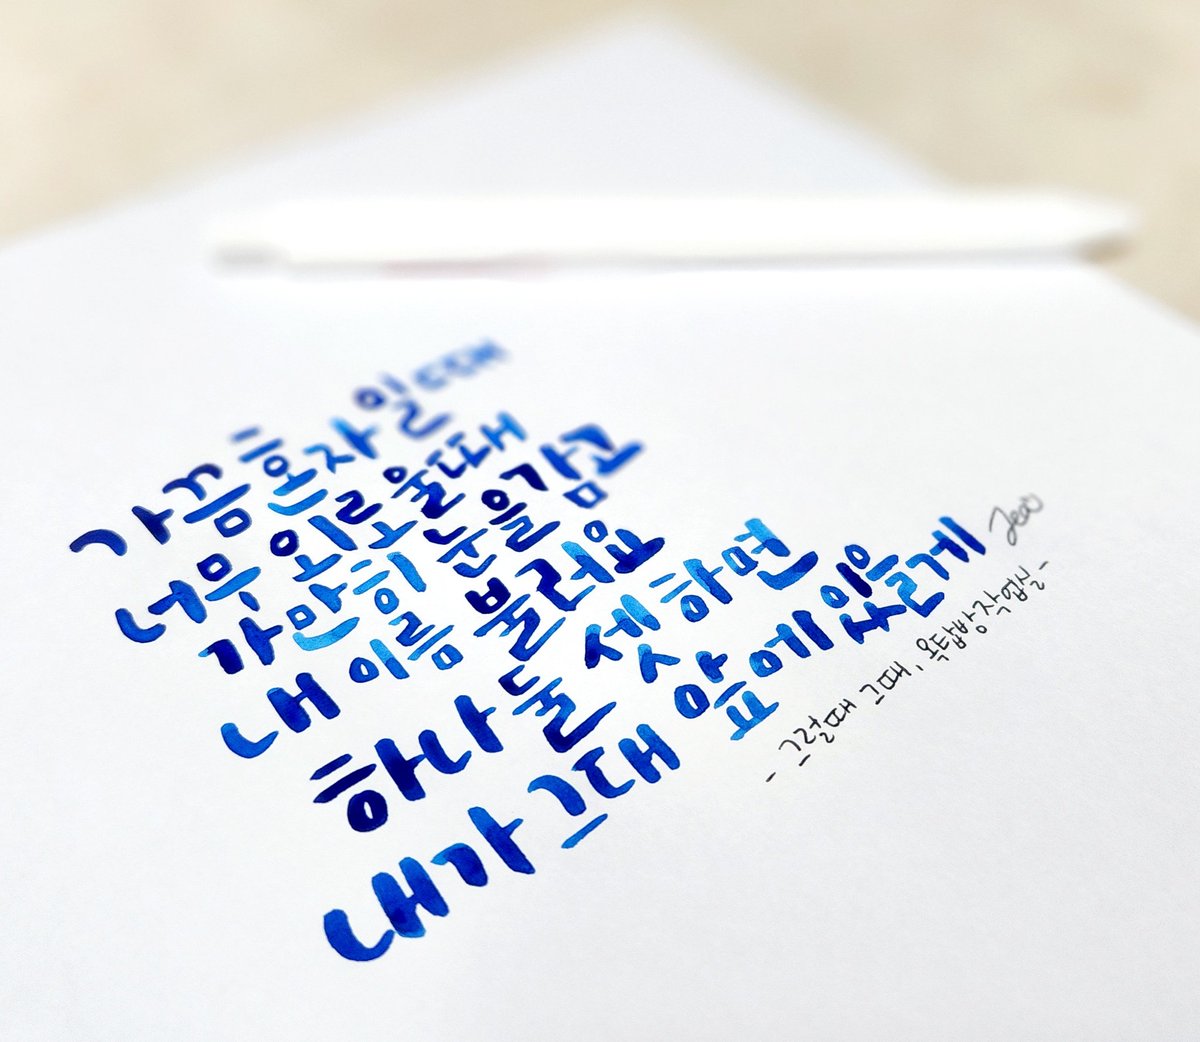 가끔 혼자 일때
너무 외로울때
가만히 눈을 감고
내 이름 불러요
하나 둘 셋 하면
내가 그대 앞에 있을게
- 그럴때 그때, 옥탑방작업실 -